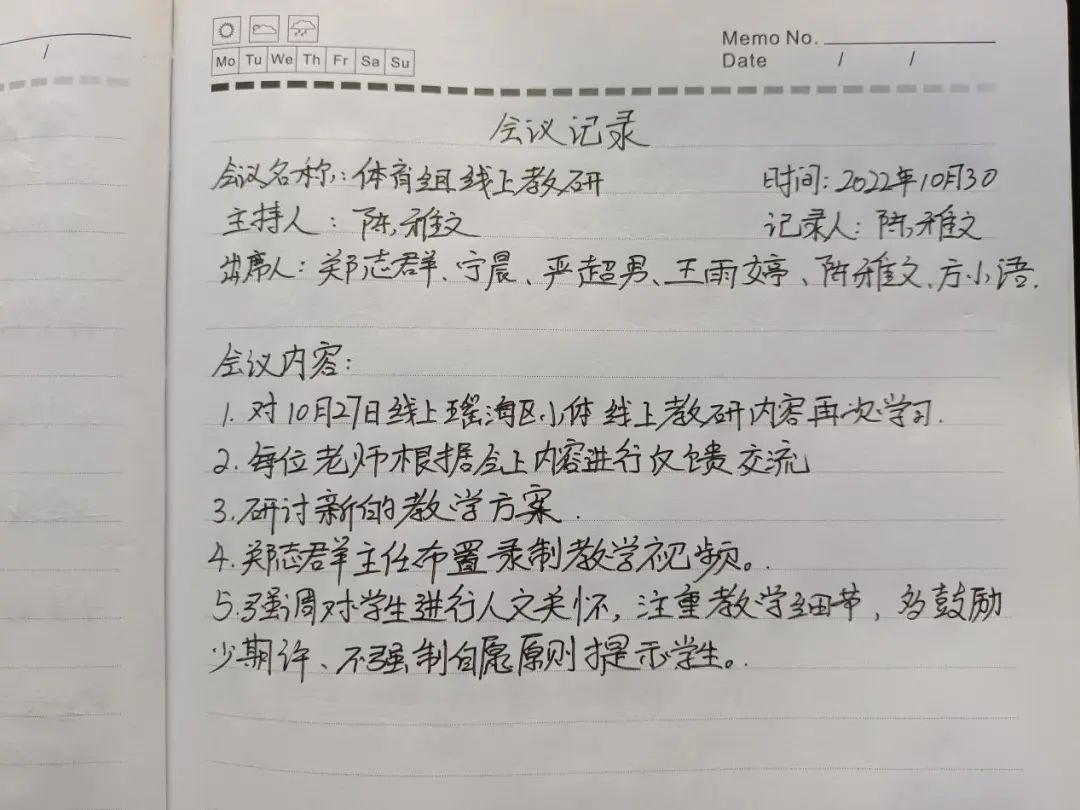 /
Mo Tu We Th Fr Sa Su
Memo No.
Date / /
会议记录
会议名称：体育组线上教研 时间：2022年10月30
主持人：陈雅文 记录人：陈雅文
出席人：郑志群、宁晨、严超男、王雨婷、陈雅文、方小语.
会议内容：
1. 对10月27日线上瑶海区小体线上教研内容再次学习.
2. 每位老师根据会上内容进行反馈交流
3. 研讨新的教学方案.
4. 郑志群主任布置录制教学视频。
5. 强调对学生进行人文关怀，注重教学细节，多鼓励
少期许、不强制自愿原则提示学生。